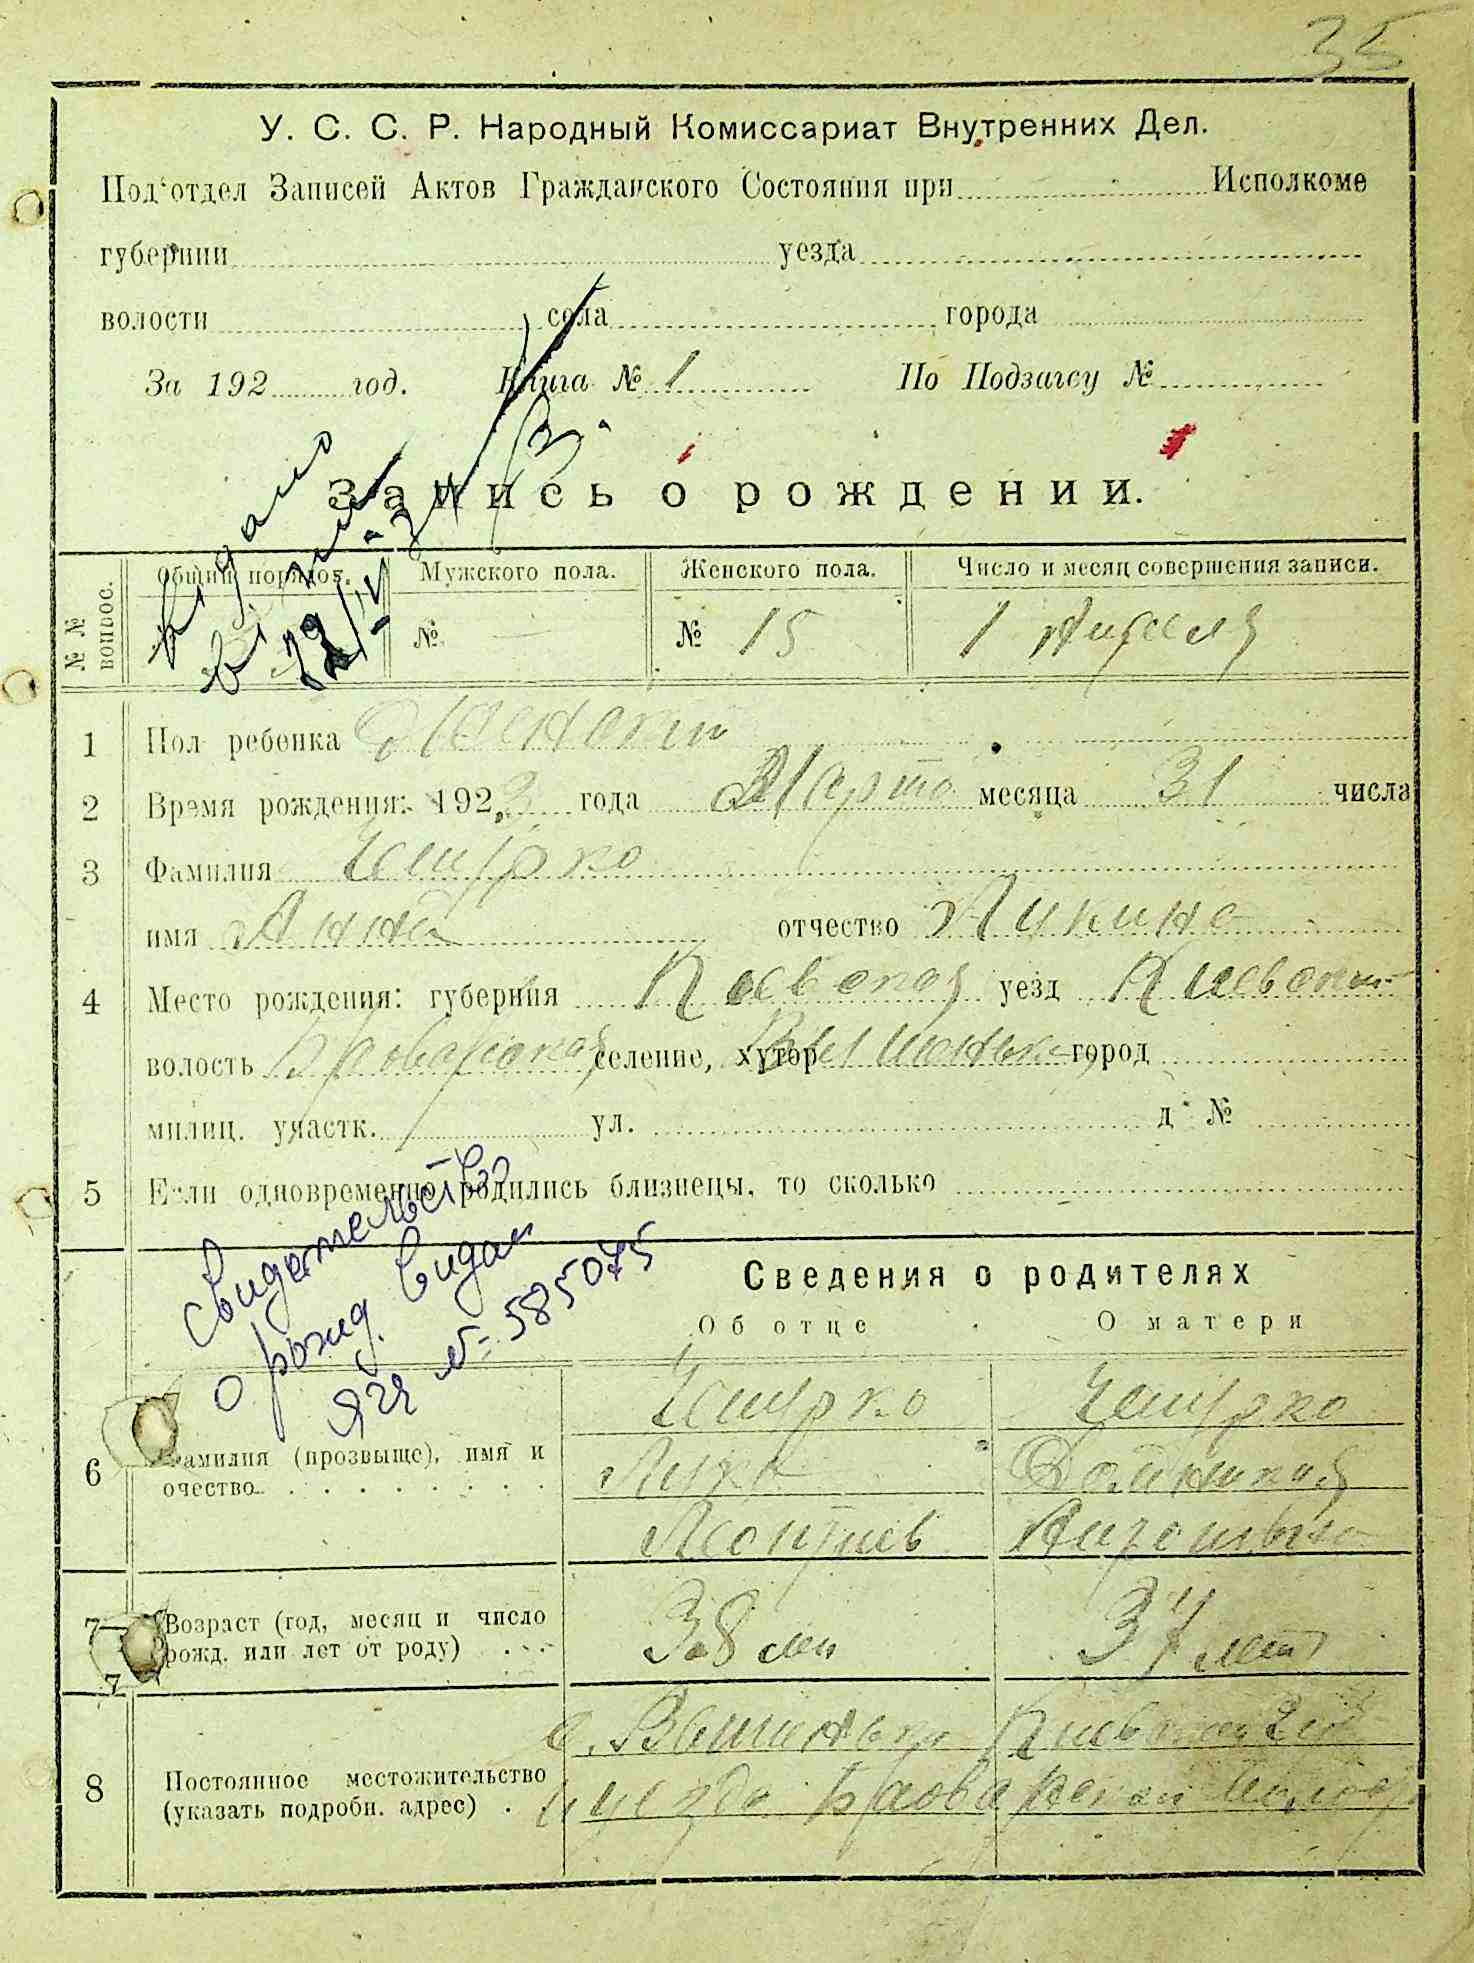 35
У. С. С. Р. Народный Комиссариат Внутренних Дел.
Под'отдел Записей Актов Гражданского Состояния при Исполкоме
губернии уезда
волости села города
За 192 год. Книга № 1 По Подзагсу №
Запись о рождении.
№ № вопрос. Общий порядок. Мужского пола. Женского пола. Число и месяц совершения записи.
№ — № 15 1 Апреля
1 Пол ребенка Женский
2 Время рождения: 1923 года Марта месяца 31 числа
3 Фамилия Чемурко
имя Анна отчество Лукина
4 Место рождения: губерния Киевская уезд Киевский
волость Броварская селение, хутор Вишеньки город
милиц. участк. ул. д №
5 Если одновременно родились близнецы, то сколько
Свидетельство
о рожд. видан
ЯЧ № 585075
Сведения о родителях
Об отце О матери
Чемурко Чемурко
6 Фамилия (прозвыще), имя и Лука
очество
Леонтиев
7 Возраст (год, месяц и число 38 лет 37 лет
рожд. или лет от роду)
7
с. Вишеньки Киевской
8 Постоянное местожительство
(указать подробн. адрес) уезда Броварской волости